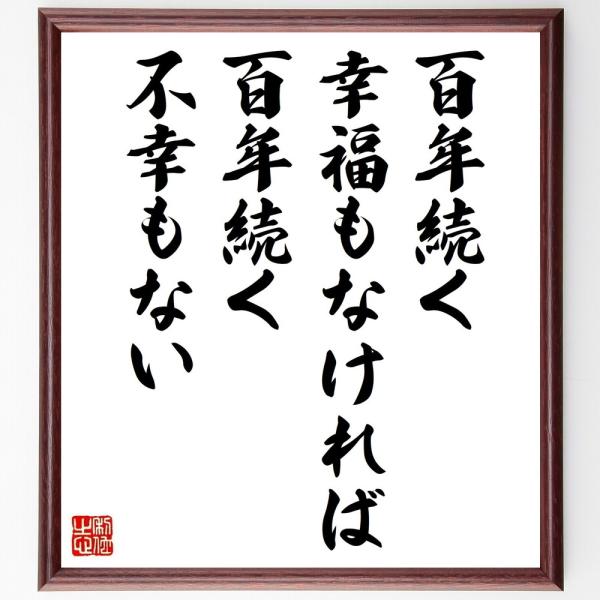 百年続く
幸福もなければ
百年続く
不幸もない